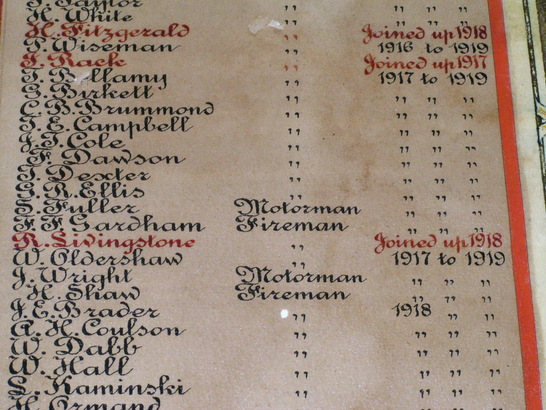 J. Taylor " 
H. White "
H. Fitzgerald " Joined up 1918
T. Wiseman " 1916 to 1919
F. Rack " Joined up 1917
T. Bellamy " 1917 to 1919
G. Birkett " " " "
C. B. Brummond " " " "
J. E. Campbell " " " "
J. T. Cole " " " "
F. Dawson " " " "
T. Dexter " " " "
G. R. Ellis " " " "
S. Fuller Motorman " " "
F. F. Gardham Fireman " " "
R. Livingstone " Joined up 1918
W. Oldershaw " 1917 to 1919
J. Wright Motorman " " "
H. Shaw Fireman " " "
J. E. Brader " 1918 " "
A. H. Coulson " " " "
W. Dabb " " " "
W. Hall " " " "
L. Kaminski " " " "
H. Ormand